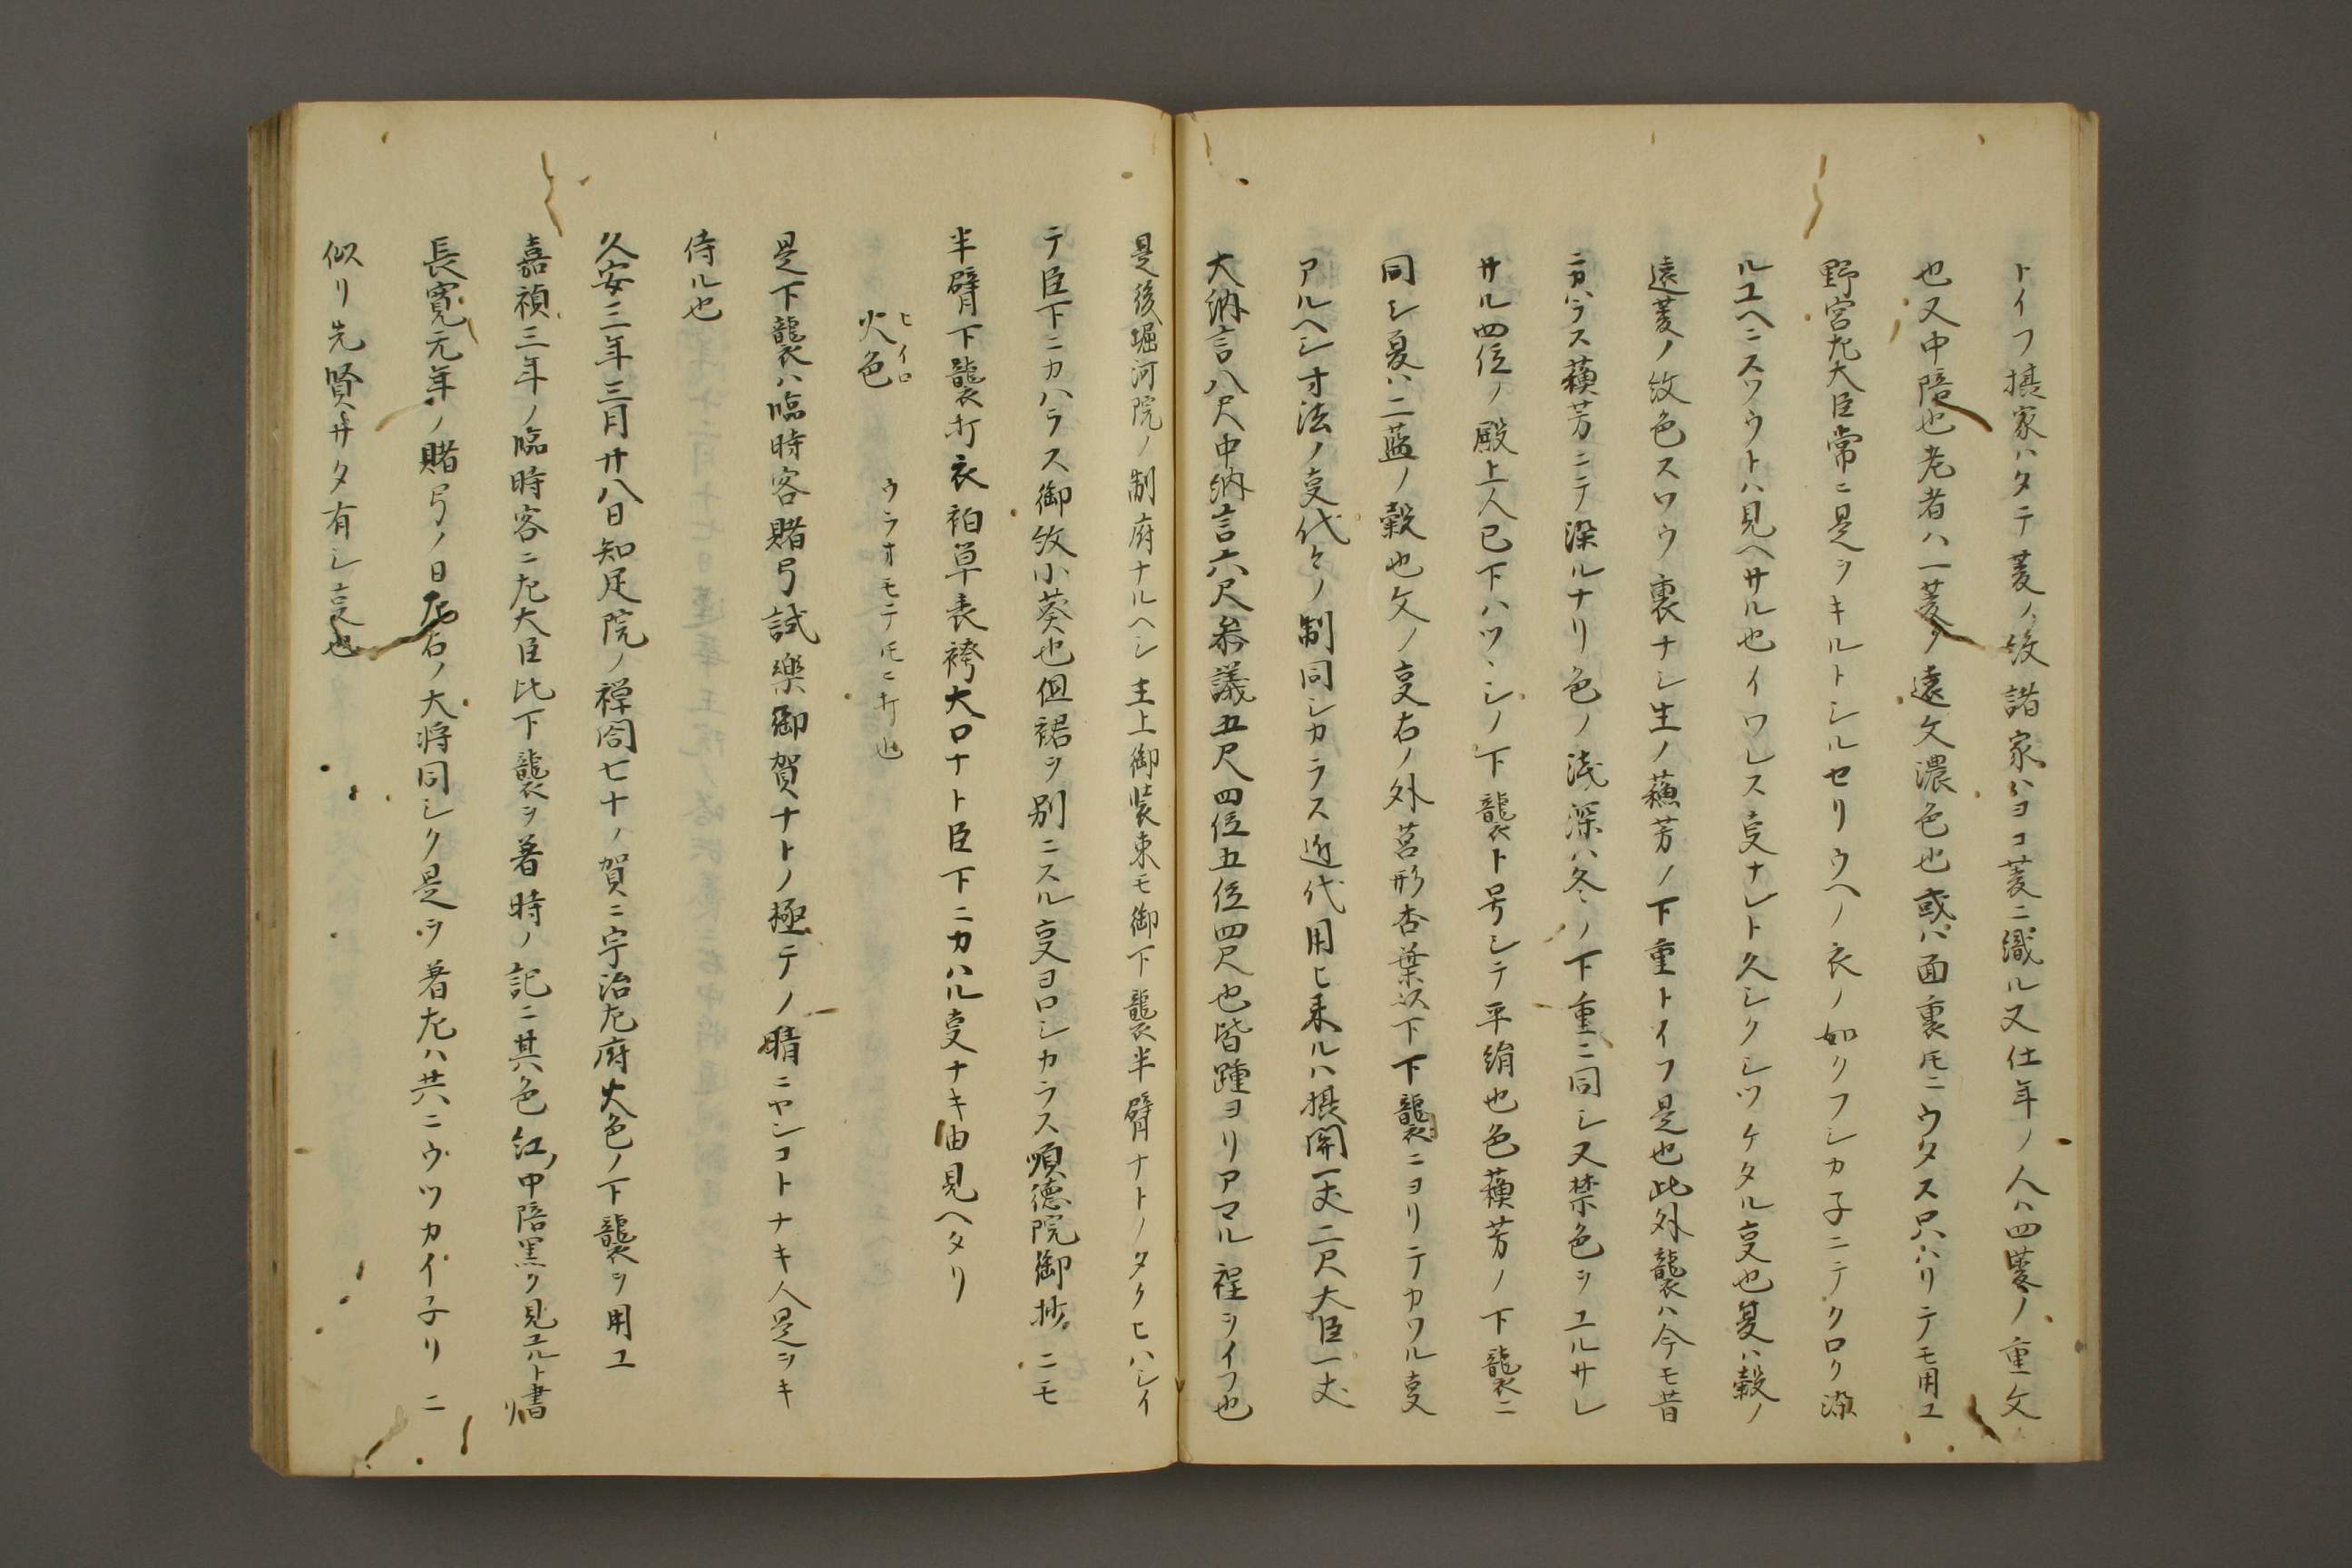 トイフ摂家ハタテ菱ノ紋諸家ハヨコ菱ニ織ル又仕年ノ人ハ四菱ノ重文
也又中陪也老者ハ一菱ノ遠文濃色也或ハ面裏トモニウタス只ハリテモ用ユ
野宮左大臣常ニ是ヲキルトシルセリウヘノ衣ノ如クフシカ子ニテクロク染
ルユヘニスワウトハ見ヘサル也イワレス叓ナレト久シクシツケタル叓也夏ハ穀ノ
遠菱ノ紋色スワウ裏ナシ生ノ蘓芳ノ下重トイフ是也此外襲ハ今モ昔
ニカハラス蘓芳ニテ深ルナリ色ノ浅深ハ冬ノ下重ニ同シ又禁色ヲユルサレ
サル四位ノ殿上人已下ハツヽシノ下襲ト号シテ平絹也色蘓芳ノ下襲ニ
同シ夏ハ二藍ノ穀也文ノ叓右ノ外莒形杏葉以下下襲ニヨリテカワル叓
アルヘシ寸法ノ叓代々ノ制同シカラス近代用ヒ来ルハ摂関一丈二尺大臣一丈
大納言八尺中納言六尺参議五尺四位五位四尺也皆踵ヨリアマル程ヲイフ也
是後堀河院ノ制府ナルヘシ主上御装束モ御下襲半臂ナトノタクヒハシイ
テ臣下ニカハラス御紋小葵也但裾ヲ別ニスル叓ヨロシカラス順徳院御抄ニモ
半臂下襲打衣袙単表袴大口ナト臣下ニカハル叓ナキ由見ヘタリ
火色 ヒイロ ウラオモテトモニ打也
是下襲ハ臨時客賭弓試楽御賀ナトノ極テノ晴ニヤンコトナキ人是ヲキ
侍ル也
久安二年三月廿八日知足院ノ禅閤七十ノ賀ニ宇治左府火色ノ下襲ヲ用ユ
嘉禎三年ノ臨時客ニ左大臣此下襲ヲ着時ノ記ニ其色紅ノ中陪黒ク見ユルト書リ
長寛元年ノ賭弓ノ日左右ノ大将同シク是ヲ着左ハ共ニウツカイ子リニ
似リ先賢サタ有シ叓也